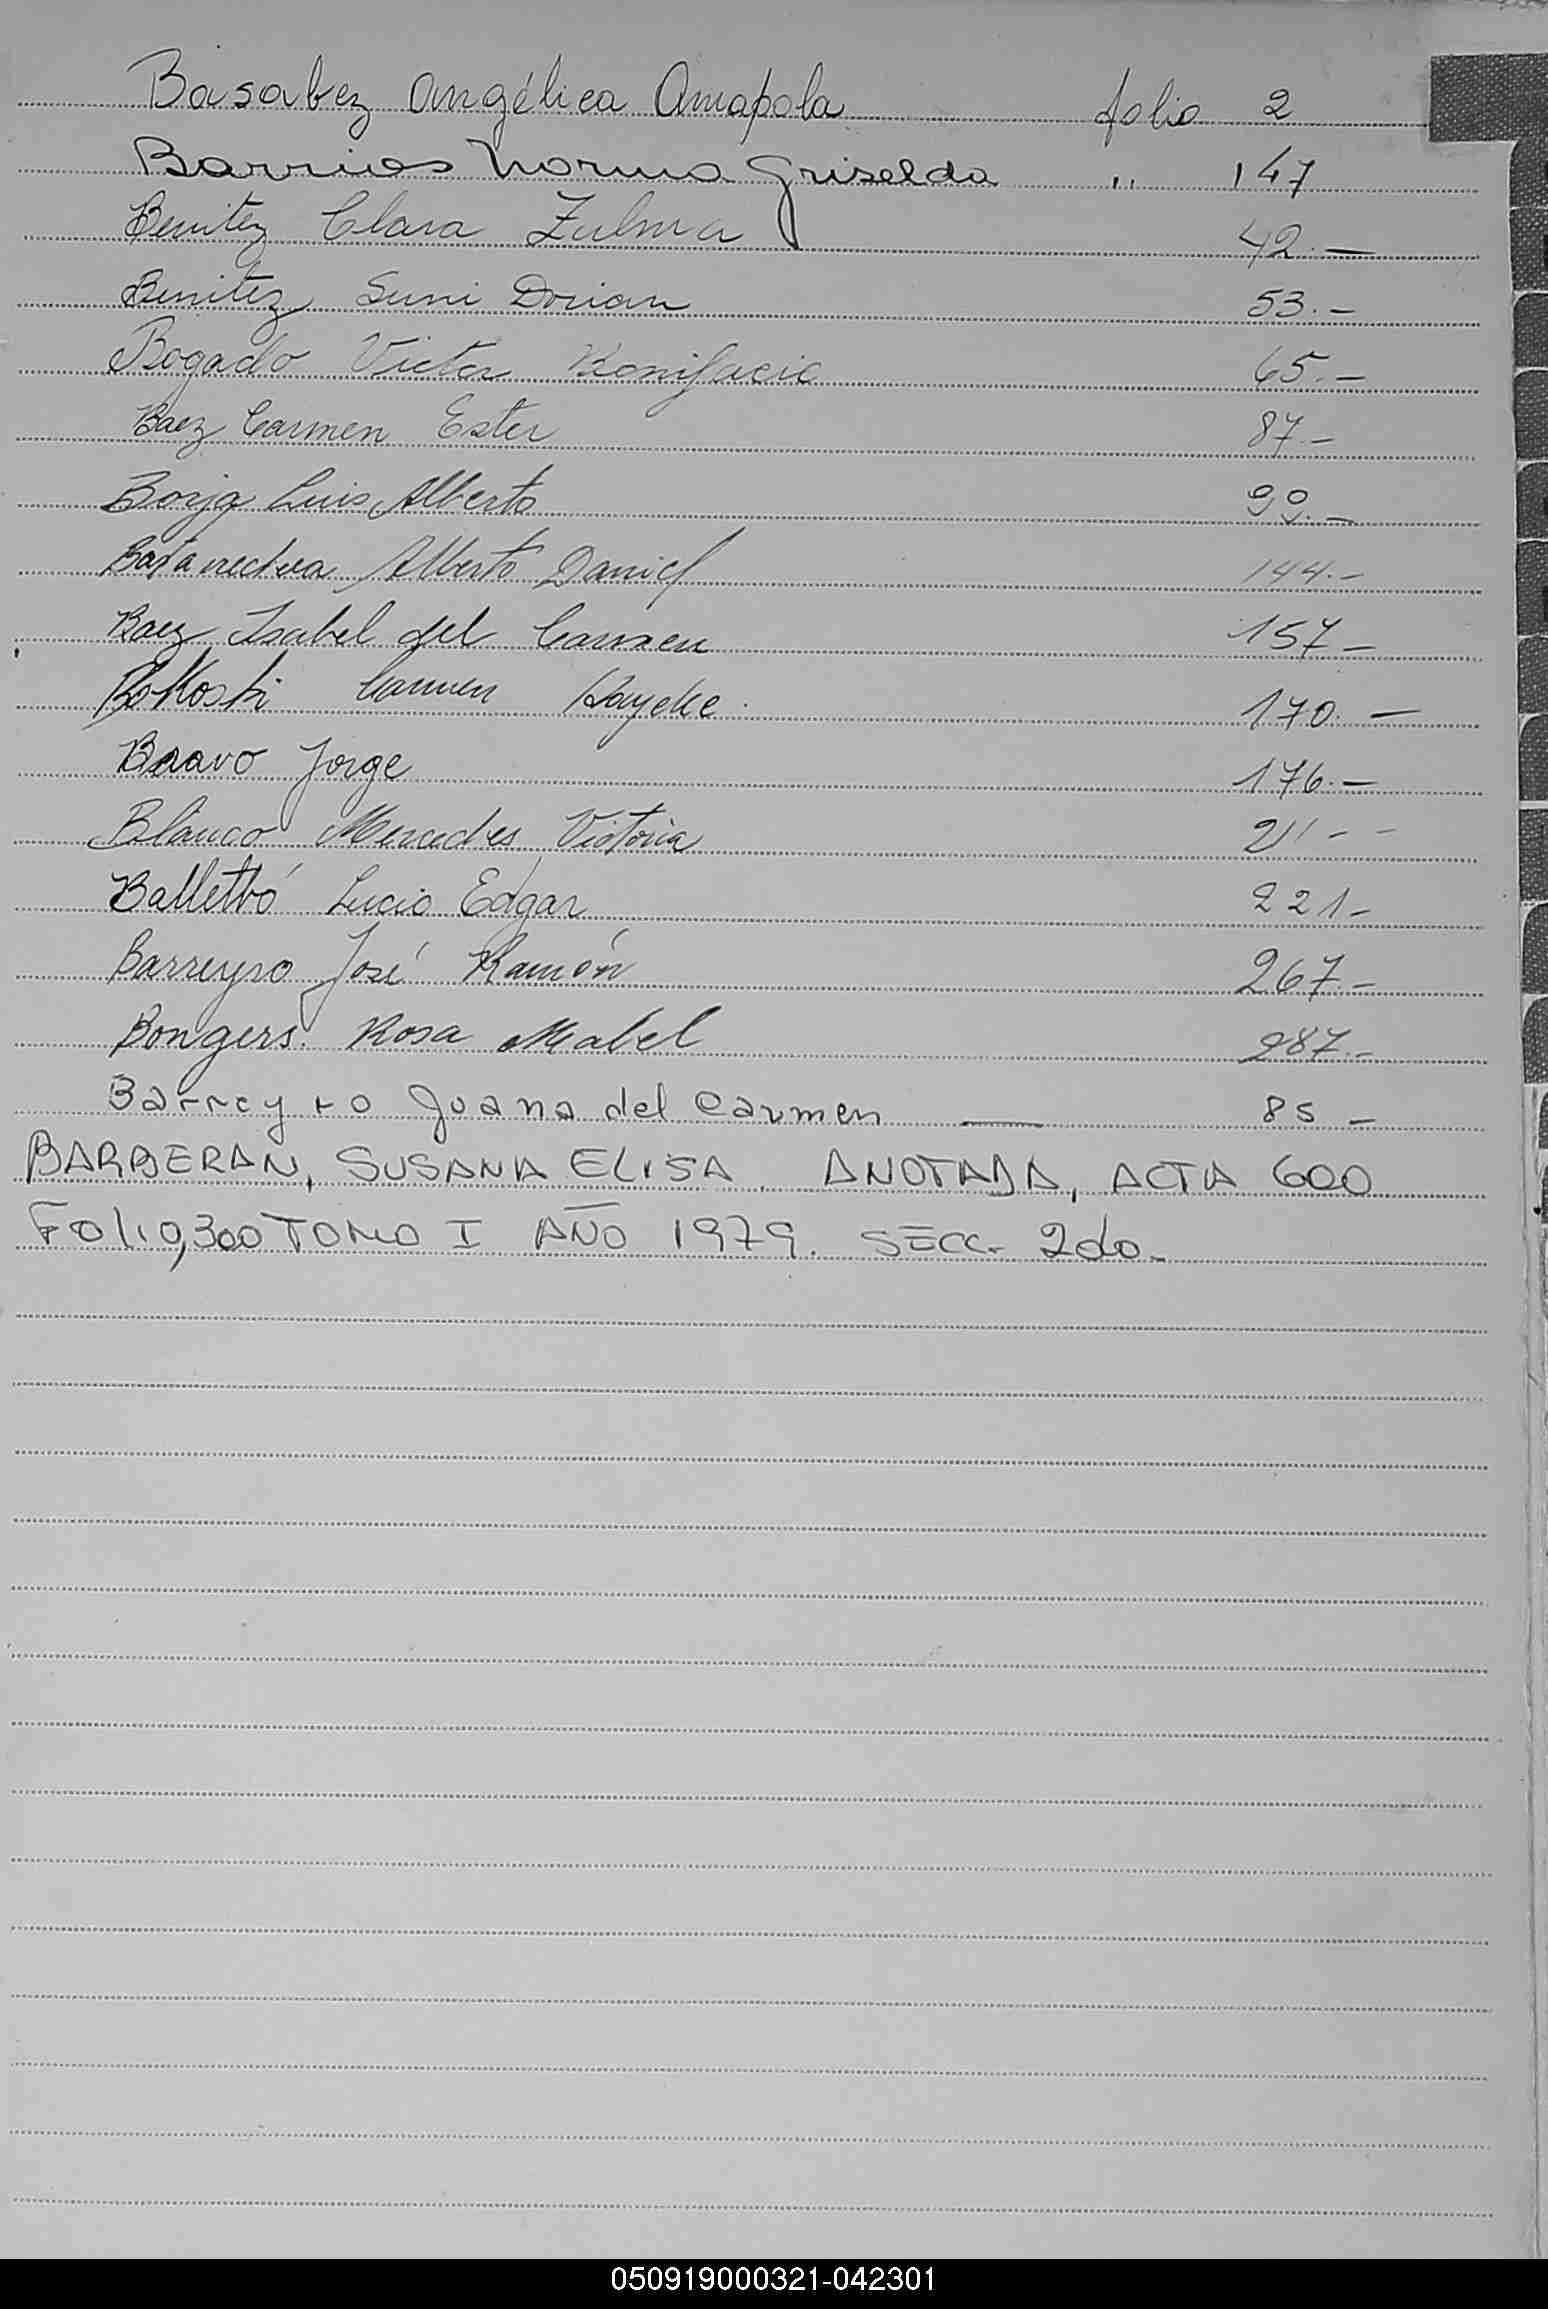 Basabez Angélica Amapola folio 2
Barrios Norma Griselda " 147
Benitez Clara Zulma 42.—
Benitez Suni Dorian 53.—
Bogado Victor Bonifacio 65.—
Baez Carmen Ester 87.—
Borja Luis Alberto 99.—
Alberto Daniel 144.—
Baez Isabel del Carmen 157—
Carmen Haydee. 170.—
Bravo Jorge 176.—
Blanco Mercedes Victoria 211--
Balletbó Lucio Edgar 221-
Barreyro José Ramón 267.-
Bongers. Rosa Mabel 287.-
Barreyro Juana del Carmen — 85 -
BARBERAN, SUSANA ELISA. ANOTADA, ACTA 600
Folio, 300 TOMO I AÑO 1979. SECC. 2do-
050919000321-042301